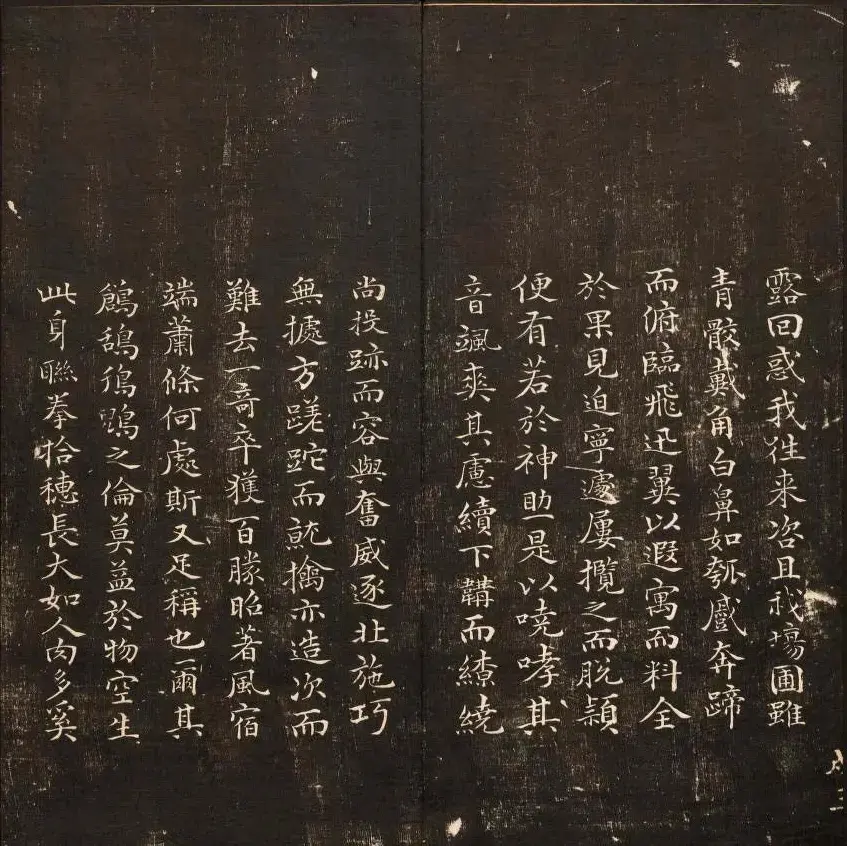 露回惑我徃来咨且我場圃雖
青骹戴角白鼻如瓠戲奔蹄
而俯臨飛迅翼以遐寓而料全
於果見迫寧遽屢攬之而脫穎
便有若於神助是以嘵哮其
音颯爽其慮續下韝而繚繞
尚投跡而容與奮威逐北施巧
無據方蹉跎而就擒亦造次而
難去一奇卒獲百勝昭著風宿
端蕭條何處斯又足稱也爾其
鶬鴰鴇鶂之倫莫益於物空生
此身聯拳拾穗長大如人肉多奚